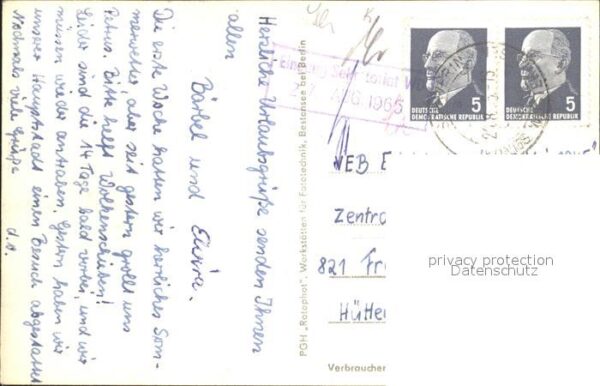 Herzliche Urlaubsgrüße senden Ihnen
allen
Bärbel und Elvira.
Die erste Woche hatten wir herrliches Som-
merwetter, aber seit gestern grollt uns
Petrus. Bitte helft Wolkenschieben!
Leider sind die 14 Tage bald vorbei, und wir
müssen wieder antraben. Gestern haben wir
unserer Hauptstadt einen Besuch abgestattet
Nochmals viele Grüße
d. o.
PGH „Rotophot“, Werkstätten für Fototechnik, Bestensee bei Berlin
AUG. 1965
DEUTSCHE
DEMOKRATISCHE REPUBLIK
5
DEUTSCHE
DEMOKRATISCHE REPUBLIK
5
VEB
Zentra
821 Fr
Hütte
privacy protection
Datenschutz
Verbraucher